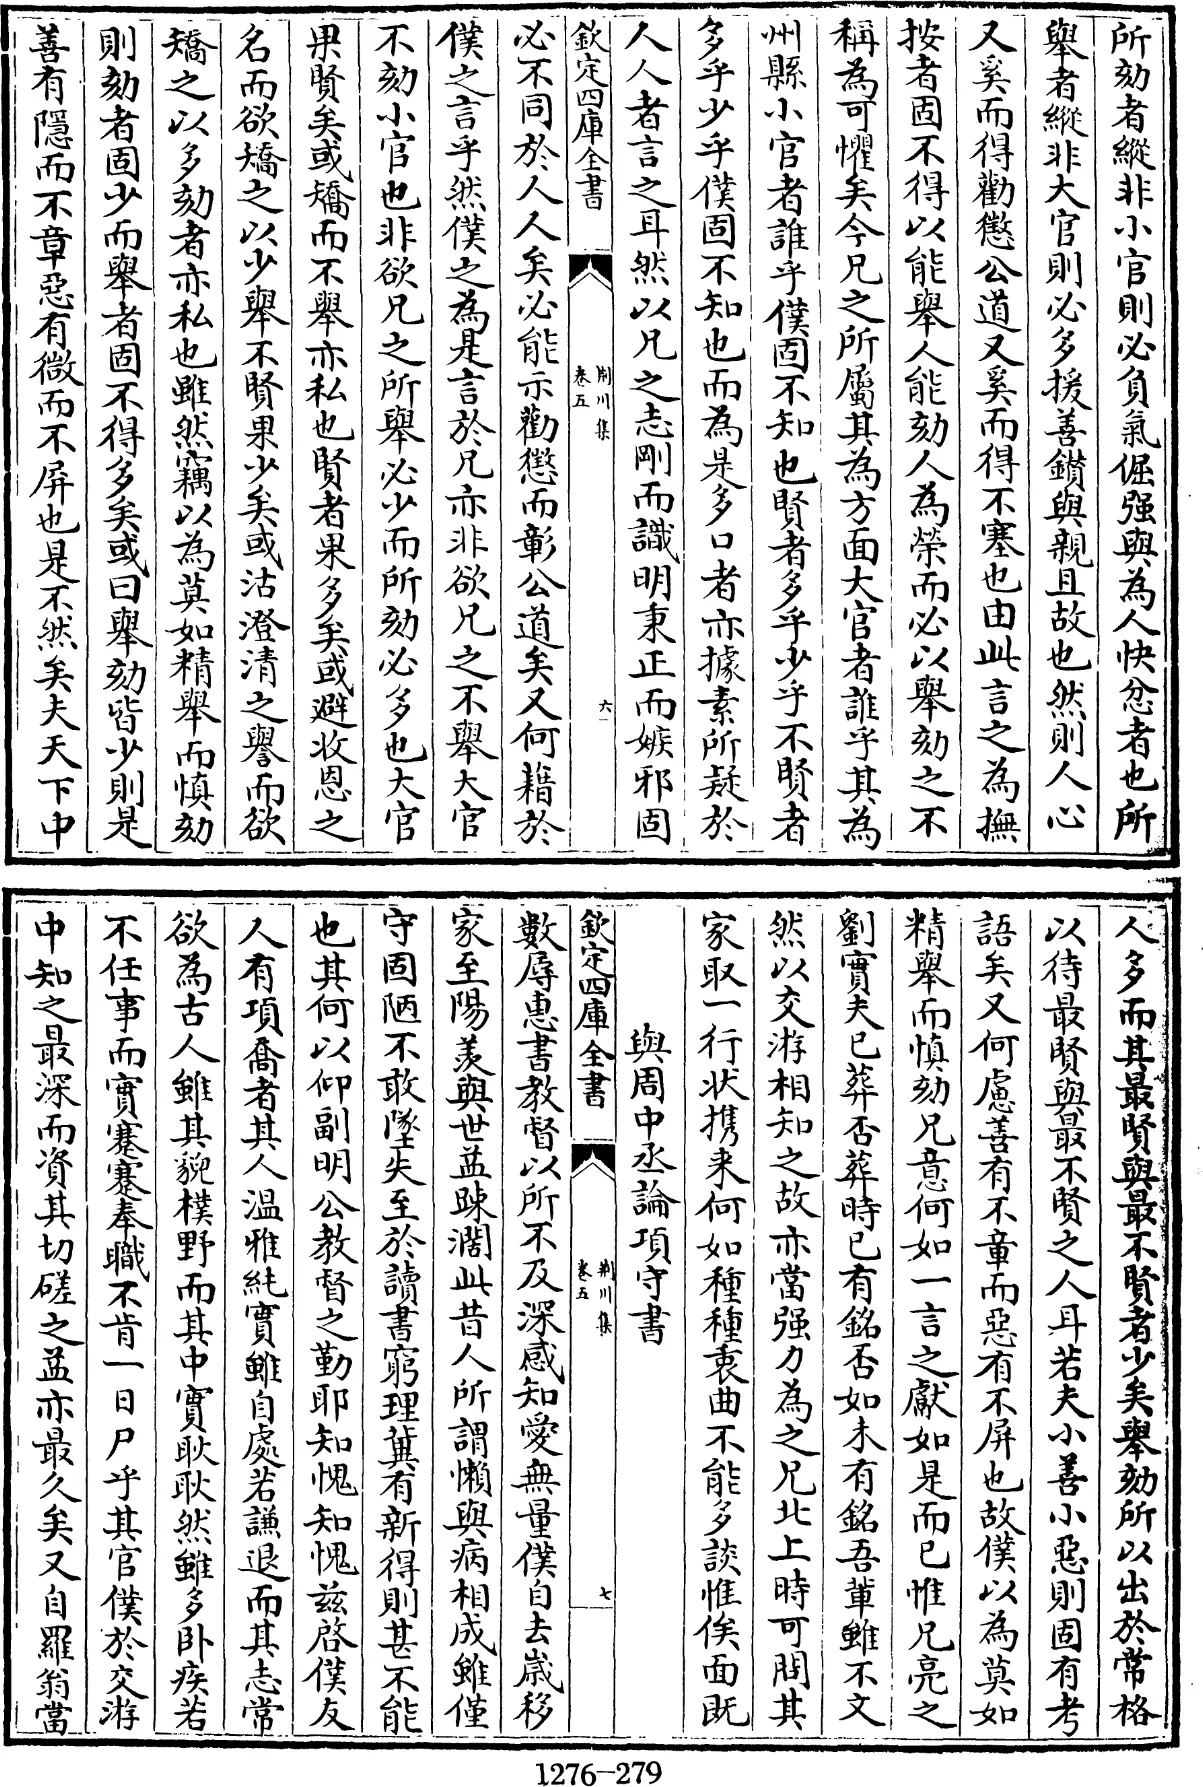 所劾者縱非小官則必負氣倔强與為人怏忿者也所
舉者縱非大官則必多援善鑚與親且故也然則人心
又奚而得勸懲公道又奚而得不塞也由此言之為撫
按者固不得以能舉人能劾人為榮而必以舉劾之不
稱為可懼矣今兄之所屬其為方面大官者誰乎其為
州縣小官者誰乎僕固不知也賢者多乎少乎不賢者
多乎少乎僕固不知也而為是多口者亦據素所疑於
人人者言之耳然以兄之志剛而識明秉正而嫉邪固
欽定四庫全書
荆川集
卷五
六
必不同於人人矣必能示勸懲而彰公道矣又何藉於
僕之言乎然僕之為是言於兄亦非欲兄之不舉大官
不劾小官也非欲兄之所舉必少而所劾必多也大官
果賢矣或矯而不舉亦私也賢者果多矣或避收恩之
名而欲矯之以少舉不賢果少矣或沽澄清之譽而欲
矯之以多劾者亦私也雖然竊以為莫如精舉而慎劾
則劾者固少而舉者固不得多矣或曰舉劾皆少則是
善有隱而不章惡有微而不屏也是不然矣夫天下中
人多而其最賢與最不賢者少矣舉劾所以出於常格
以待最賢與最不賢之人耳若夫小善小惡則固有考
語矣又何慮善有不章而惡有不屏也故僕以為莫如
精舉而慎劾兄意何如一言之獻如是而已惟兄亮之
劉實夫已葬否葬時已有銘否如未有銘吾輩雖不文
然以交游相知之故亦當强力為之兄北上時可問其
家取一行狀携来何如種種衷曲不能多談惟俟面既
與周中丞論項守書
欽定四庫全書
荆川集
卷五
七
數辱惠書教督以所不及深感知愛無量僕自去嵗移
家至陽羡與世益踈濶此昔人所謂懶與病相成雖僅
守固陋不敢墜失至於讀書窮理冀有新得則甚不能
也其何以仰副明公教督之勤耶知愧知愧兹啓僕友
人有項喬者其人温雅純實雖自處若謙退而其志常
欲為古人雖其貌樸野而其中實耿耿然雖多卧疾若
不任事而實蹇蹇奉職不肯一日尸乎其官僕於交游
中知之最深而資其切磋之益亦最久矣又自羅翁當
1276-279